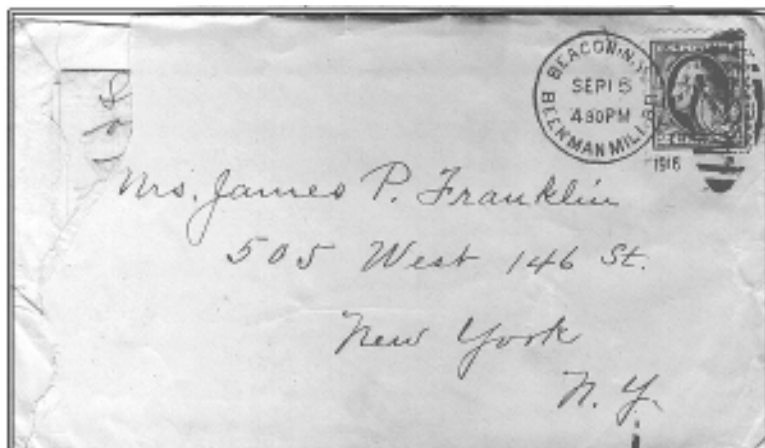 BEACON, N.Y.
SEP 15
4 30 PM
BEEKMAN MILL BR.
1916
Mrs. James P. Franklin
505 West 146 St.
New York
N. Y.